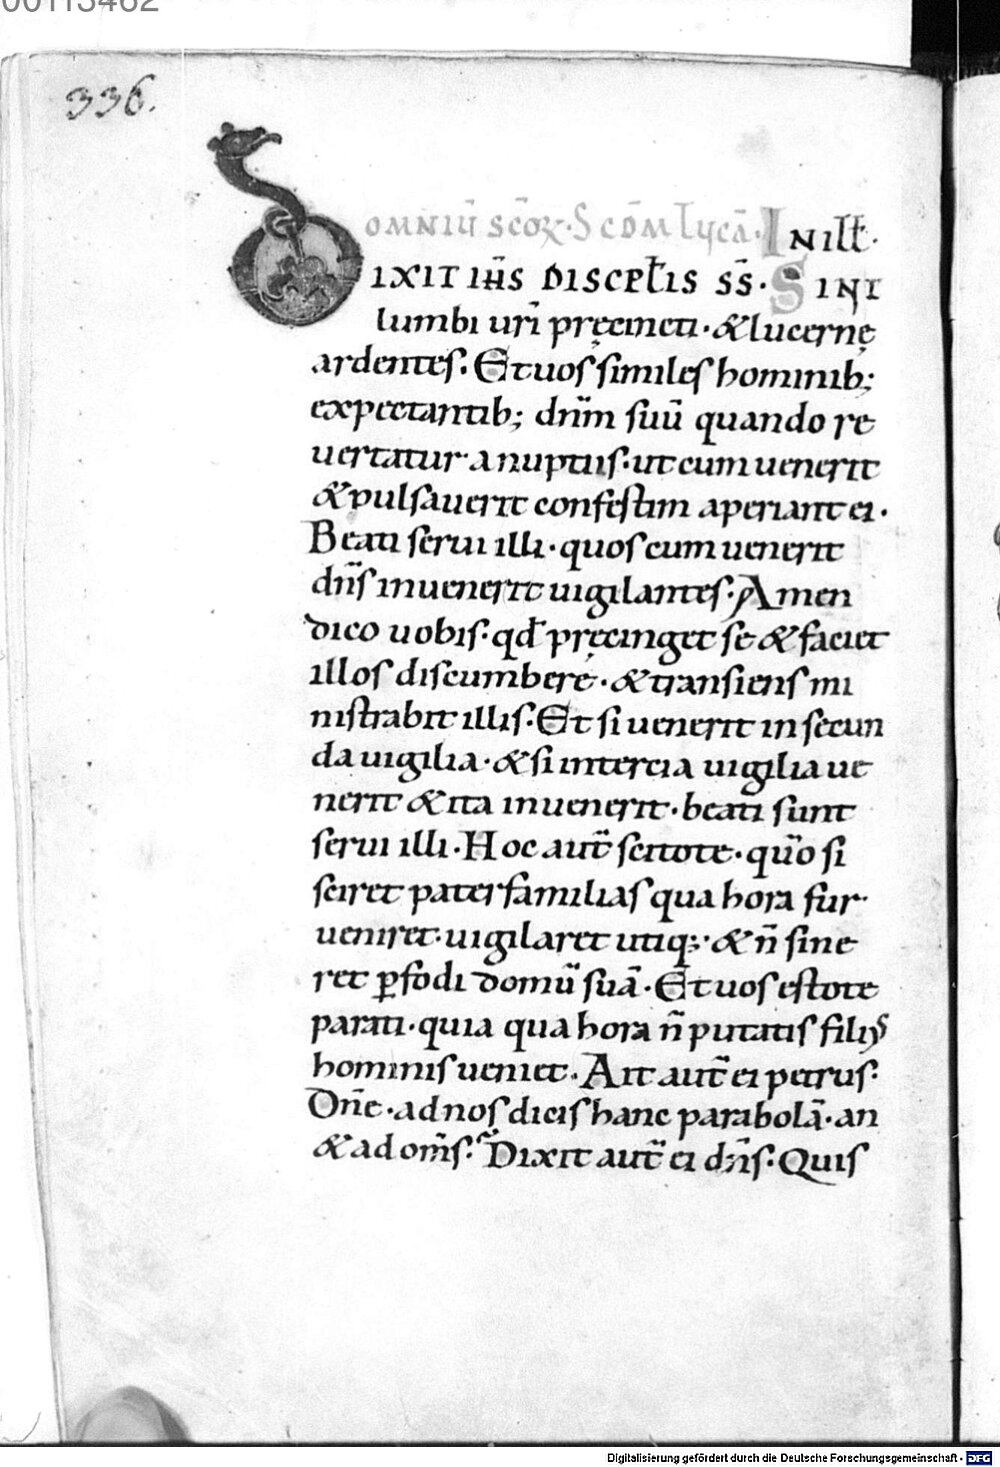 00113462
336.
OMNIŪ SC̄OꝜ· S̄ C̄DM LUCĀ· IN ILL̄·
DIXIT IH̄S DISCPL̄IS S̄S̄· SINT
lumbi ur̄i pręcincti· & lucernę
ardentes. Et uos similes hominib;
expectantib; dn̄m suū quando re
uertatur a nuptiis· ut cum uenerit
& pulsauerit confestim aperiant ei·
Beati serui illi· quos cum uenerit
dn̄s inuenerit uigilantes· Amen
dico uobis· qđ pręcinget se & faciet
illos discumbere· & transiens mi
nistrabit illis· Et si uenerit in secun
da uigilia· & si in tercia uigilia ue
nerit & ita inuenerit· beati sunt
serui illi· Hoc aut̄ scitote· qūo si
sciret paterfamilias qua hora fur·
ueniret· uigilaret utiq;· & n̄ sine
ret ꝑfodi domū suā· Et uos estote
parati· quia qua hora n̄ putatis filiꝰ
hominis ueniet· Ait aut̄ ei petrus·
Dn̄e· ad nos dicis hanc parabolā· an
& ad om̄s· Dixit aut̄ ei dn̄s· Quis
Digitalisierung gefördert durch die Deutsche Forschungsgemeinschaft - DFG